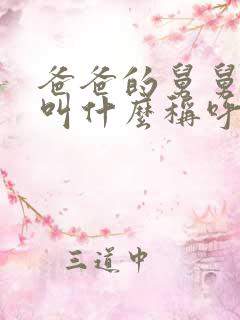 爸爸的舅舅
叫什麼稱呼
三道中